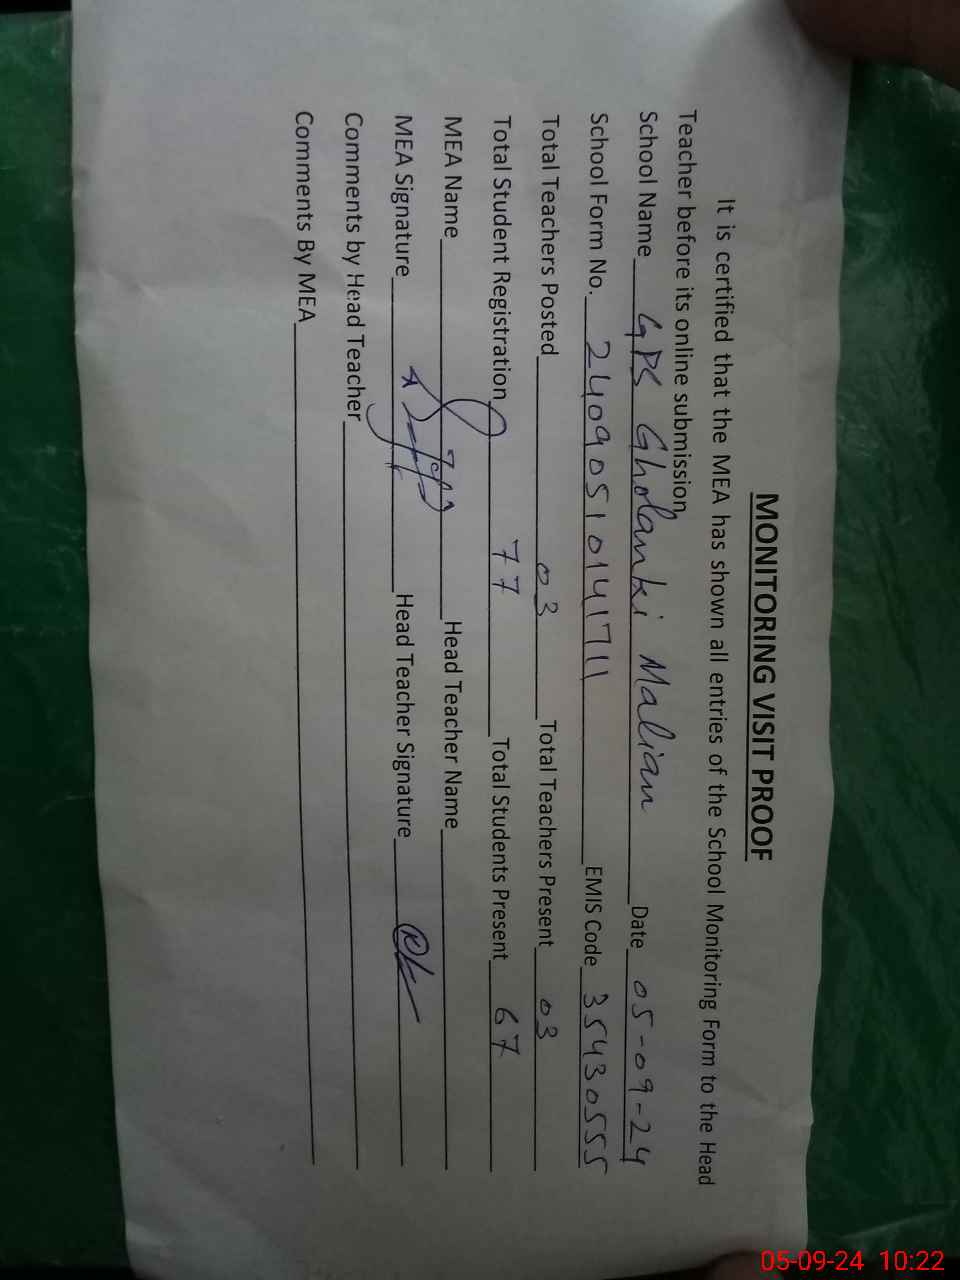 MONITORING VISIT PROOF
It is certified that the MEA has shown all entries of the School Monitoring Form to the Head
Teacher before its online submission.
School Name GPS Gholanki Malian Date 05-09-24
School Form No. 24090510141711 EMIS Code 35430555
Total Teachers Posted 03 Total Teachers Present 03
Total Student Registration 77 Total Students Present 67
MEA Name Head Teacher Name
MEA Signature Head Teacher Signature
Comments by Head Teacher
Comments By MEA
05-09-24 10:22